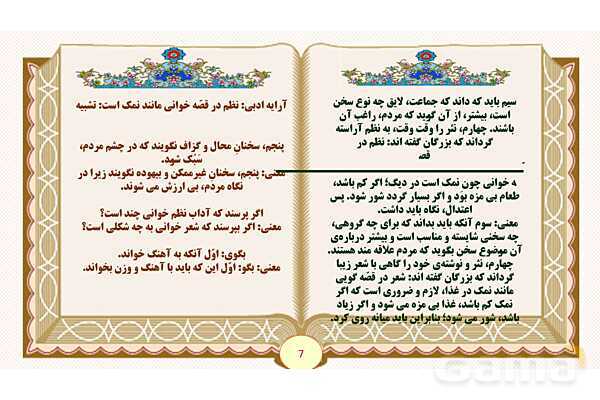 سیم باید که داند که جماعت، لایق چه نوع سخن
است، بیشتر، از آن گوید که مردم، راغب آن
باشند. چهارم، نثر را وقت وقت، به نظم آراسته
گرداند که بزرگان گفته اند: نظم در
قص
ه خوانی چون نمک است در دیگ؛ اگر کم باشد،
طعام بی مزه بود و اگر بسیار گردد شور شود. پس
اعتدال، نگاه باید داشت.
معنی: سوم آنکه باید بداند که برای چه گروهی،
چه سخنی شایسته و مناسب است و بیشتر درباره‌ی
آن موضوع سخن بگوید که مردم علاقه مند هستند.
چهارم، نثر و نوشته‌ی خود را گاهی با شعر زیبا
گرداند که بزرگان گفته اند: شعر در قصّه گویی
مانند نمک در غذا، لازم و ضروری است که اگر
نمک کم باشد، غذا بی مزه می شود و اگر زیاد
باشد، شور می شود؛ بنابراین باید میانه روی کرد.
آرایه ادبی: نظم در قصّه خوانی مانند نمک است: تشبیه
پنجم، سخنانِ محال و گزاف نگویند که در چشم مردم،
سَبُک شود.
معنی: پنجم، سخنانِ غیرممکن و بیهوده نگویند زیرا در
نگاه مردم، بی ارزش می شوند.
اگر پرسند که آداب نظم خوانی چند است؟
معنی: اگر بپرسند که شعر خوانی به چه شکلی است؟
بگوی: اوّل آنکه به آهنگ خواند.
معنی: بگو: اوّل این که باید با آهنگ و وزن بخواند.
7
Gama